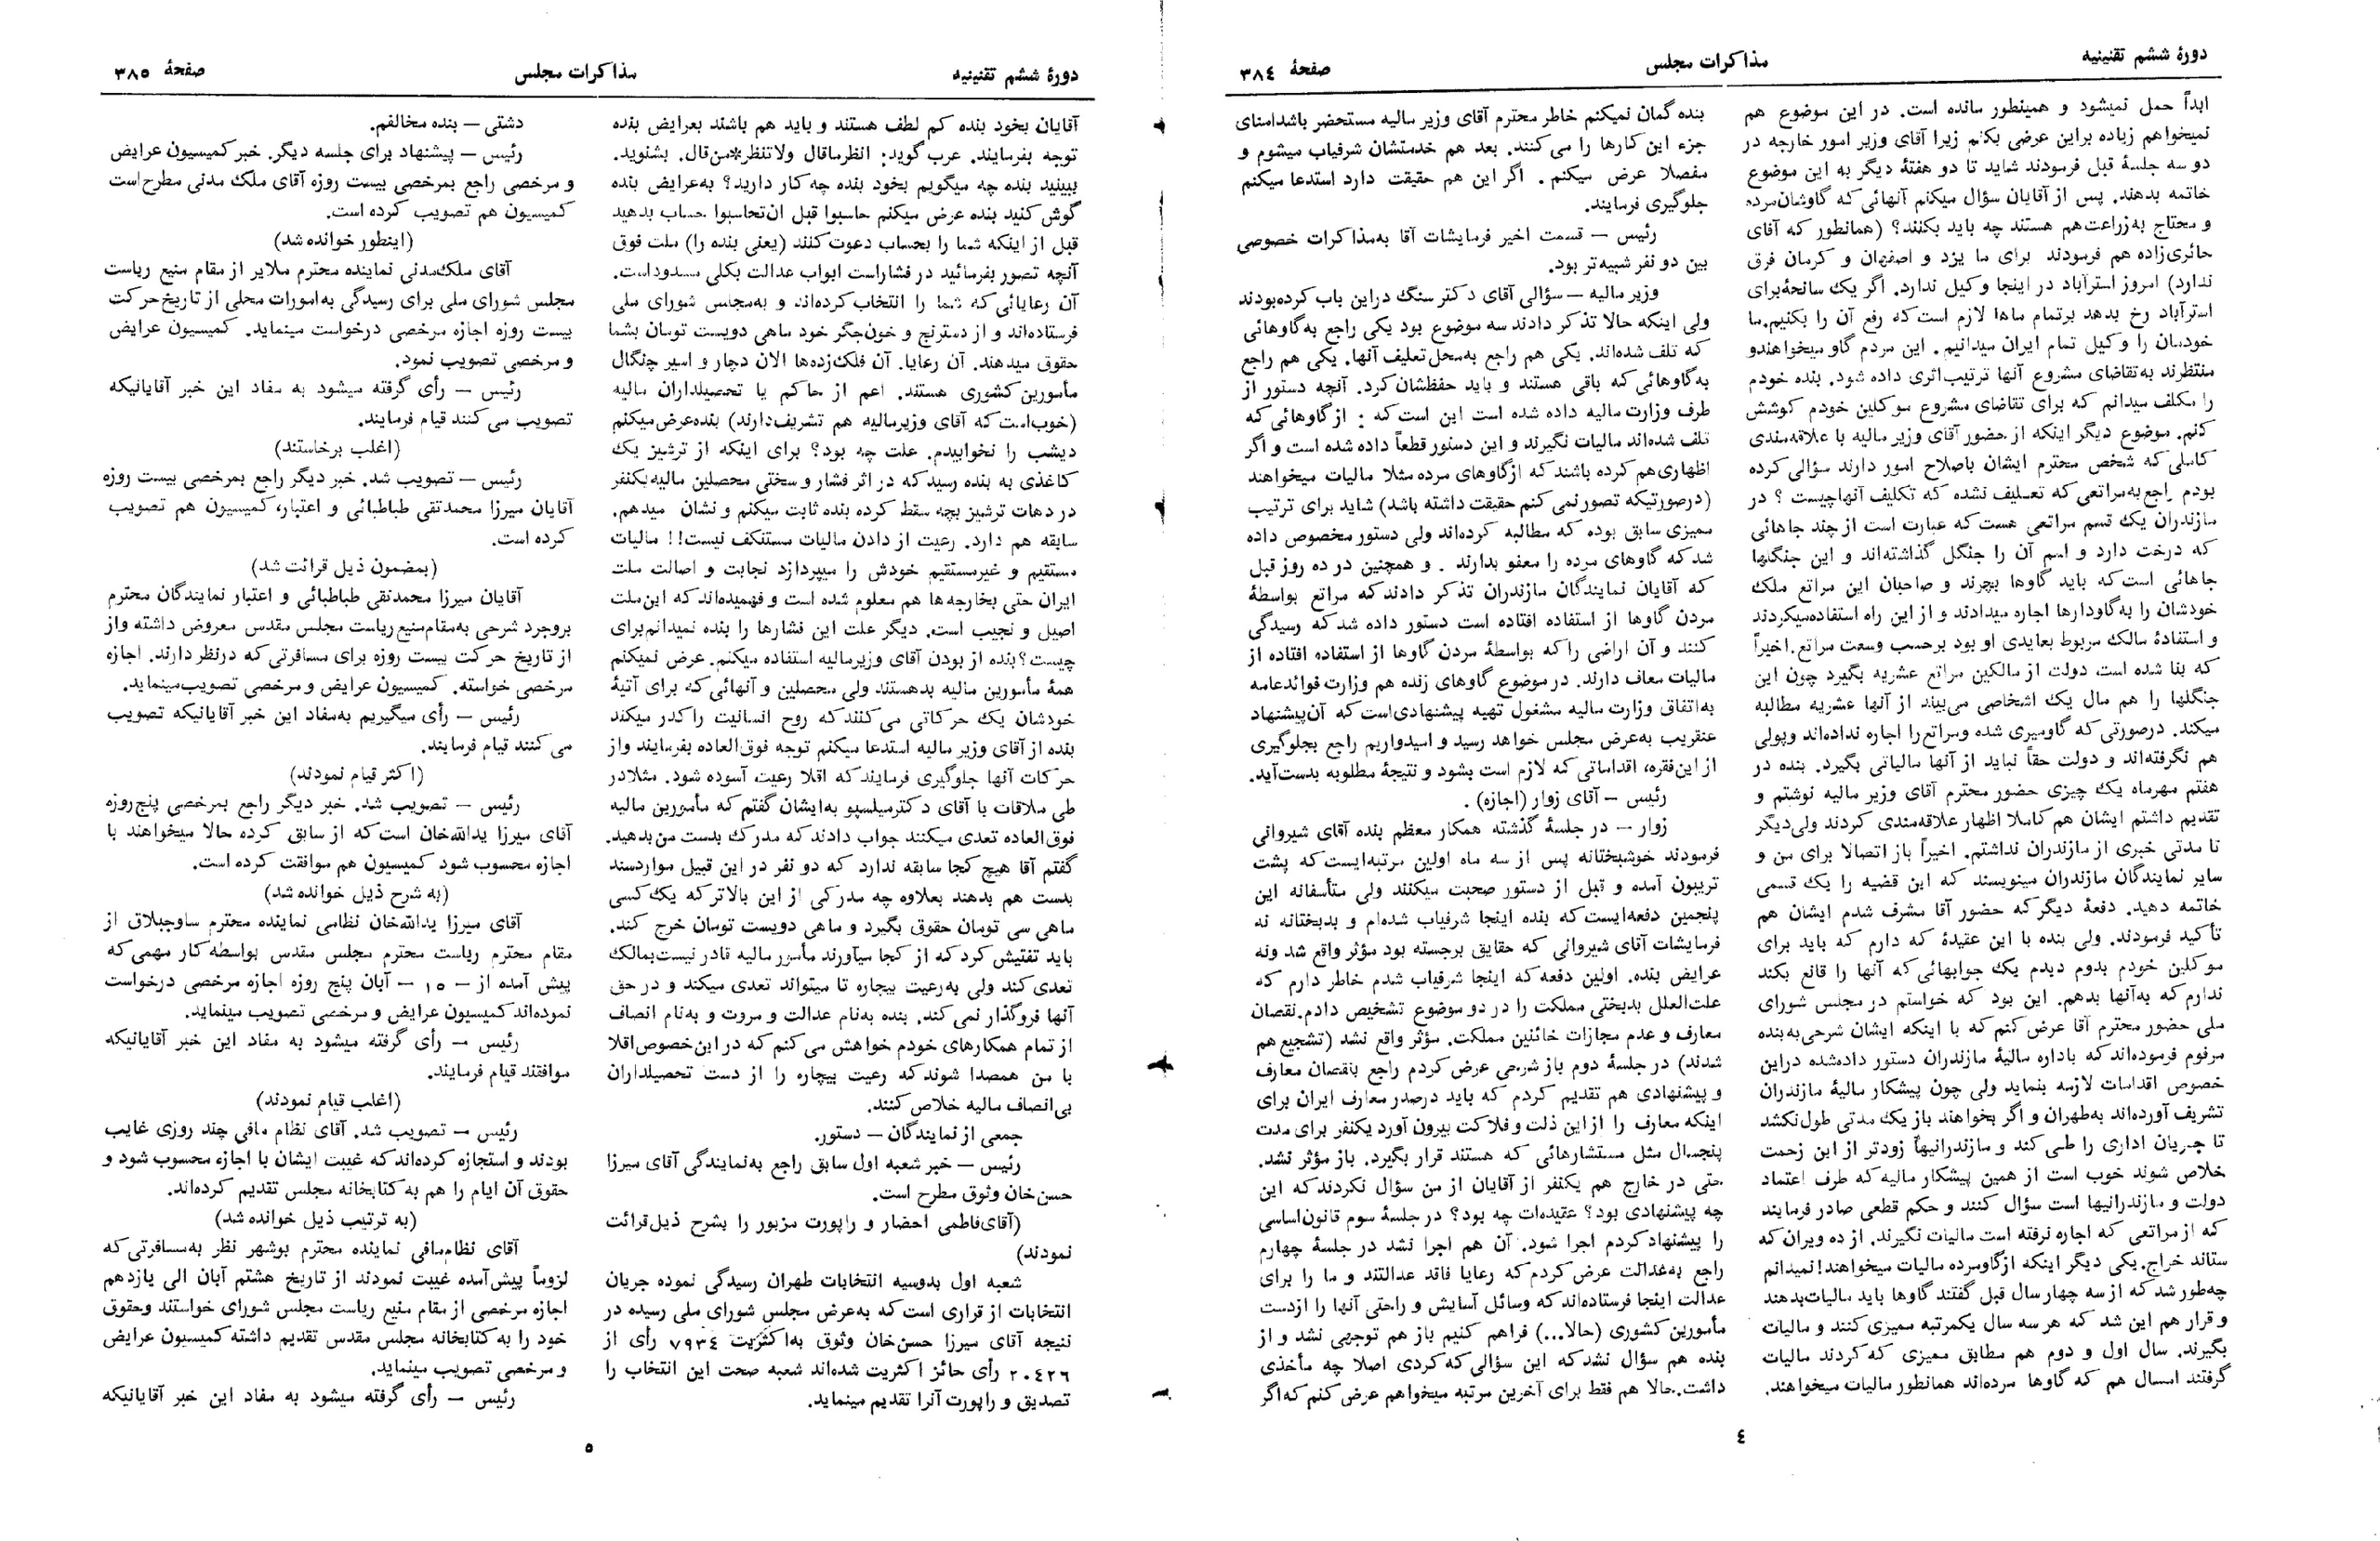 دورهٔ ششم تقنینیه
مذاکرات مجلس
صفحهٔ ٣٨٤
ابداً حمل نمیشود و همینطور مانده است. در این موضوع هم
نمیخواهم زیاده براین عرضی بکنم زیرا آقای وزیر امور خارجه در
دو سه جلسهٔ قبل فرمودند شاید تا دو هفتهٔ دیگر به این موضوع
خاتمه بدهند. پس از آقایان سؤال میکنم آنهائی که گاوشان‌مرده
و محتاج به‌زراعت‌هم هستند چه باید بکنند؟ (همانطور که آقای
حائری‌زاده هم فرمودند برای ما یزد و اصفهان و کرمان فرق
ندارد) امروز استرآباد در اینجا وکیل ندارد. اگر یک سانحهٔ‌برای
استرآباد رخ بدهد برتمام ماها لازم است‌که رفع آن را بکنیم.ما
خودمان را وکیل تمام ایران میدانیم. این مردم گاو میخواهندو
منتظرند به‌تقاضای مشروع آنها ترتیب‌اثری داده شود. بنده خودم
را مکلف میدانم که برای تقاضای مشروع موکلین خودم کوشش
کنم. موضوع دیگر اینکه از حضور آقای وزیر مالیه با علاقه‌مندی
کاملی که شخص محترم ایشان باصلاح امور دارند سؤالی کرده
بودم راجع به‌مراتعی که تعلیف نشده که تکلیف آنهاچیست ؟ در
مازندران یک قسم مراتعی هست که عبارت است از چند جاهائی
که درخت دارد و اسم آن را جنگل گذاشته‌اند و این جنگلها
جاهائی است‌که باید گاوها بچرند و صاحبان این مراتع ملک
خودشان را به‌گاودارها اجاره میدادند و از این راه استفاده‌میکردند
و استفادهٔ مالک مربوط بعایدی او بود برحسب وسعت مراتع.اخیراً
که بنا شده است دولت از مالکین مراتع عشریه بگیرد چون این
جنگلها را هم مال یک اشخاصی می‌بیند از آنها عشریه مطالبه
میکند. درصورتی که گاومیری شده ومراتع‌را اجاره نداده‌اند وپولی
هم نگرفته‌اند و دولت حقاً نباید از آنها مالیاتی بگیرد. بنده در
هفتم مهرماه یک چیزی حضور محترم آقای وزیر مالیه نوشتم و
تقدیم داشتم ایشان هم کاملا اظهار علاقه‌مندی کردند ولی‌دیگر
تا مدتی خبری از مازندران نداشتم. اخیراً باز اتصالا برای من و
سایر نمایندگان مازندران مینویسند که این قضیه را یک قسمی
خاتمه دهید. دفعهٔ دیگر که حضور آقا مشرف شدم ایشان هم
تأکید فرمودند. ولی بنده با این عقیدهٔ که دارم که باید برای
موکلین خودم بدوم دیدم یک جوابهائی که آنها را قانع بکند
ندارم که به‌آنها بدهم. این بود که خواستم در مجلس شورای
ملی حضور محترم آقا عرض کنم که با اینکه ایشان شرحی‌به‌بنده
مرقوم فرموده‌اند که باداره مالیهٔ مازندران دستور داده‌شده دراین
خصوص اقدامات لازمه بنماید ولی چون پیشکار مالیهٔ مازندران
تشریف آورده‌اند به‌طهران و اگر بخواهند باز یک مدتی طول‌نکشد
تا جریان اداری را طی کند و مازندرانیها زودتر از این زحمت
خلاص شوند خوب است از همین پیشکار مالیه که طرف اعتماد
دولت و مازندرانیها است سؤال کنند و حکم قطعی صادر فرمایند
که از مراتعی که اجاره نرفته است مالیات نگیرند. از ده ویران که
ستاند خراج.یکی دیگر اینکه ازگاومرده مالیات میخواهند!نمیدانم
چه‌طور شد که از سه چهار سال قبل گفتند گاوها باید مالیات‌بدهند
و قرار هم این شد که هر سه سال یکمرتبه ممیزی کنند و مالیات
بگیرند. سال اول و دوم هم مطابق ممیزی که کردند مالیات
گرفتند امسال هم که گاوها مرده‌اند همانطور مالیات میخواهند.
بنده گمان نمیکنم خاطر محترم آقای وزیر مالیه مستحضر باشدامنای
جزء این کارها را می کنند. بعد هم خدمتشان شرفیاب میشوم و
مفصلا عرض میکنم. اگر این هم حقیقت دارد استدعا میکنم
جلوگیری فرمایند.
رئیس – قسمت اخیر فرمایشات آقا به‌مذاکرات خصوصی
بین دو نفر شبیه‌تر بود.
وزیر مالیه – سؤالی آقای دکتر سنگ دراین باب کرده‌بودند
ولی اینکه حالا تذکر دادند سه موضوع بود یکی راجع به‌گاوهائی
که تلف شده‌اند. یکی هم راجع به‌محل‌تعلیف آنها. یکی هم راجع
به‌گاوهائی که باقی هستند و باید حفظشان کرد. آنچه دستور از
طرف وزارت مالیه داده شده است این است که : ازگاوهائی که
تلف شده‌اند مالیات نگیرند و این دستور قطعاً داده شده است و اگر
اظهاری هم کرده باشند که ازگاوهای مرده مثلا مالیات میخواهند
(درصورتیکه تصور نمی کنم حقیقت داشته باشد) شاید برای ترتیب
ممیزی سابق بوده که مطالبه کرده‌اند ولی دستور مخصوص داده
شد که گاوهای مرده را معفو بدارند . و همچنین در ده روز قبل
که آقایان نمایندگان مازندران تذکر دادند که مراتع بواسطهٔ
مردن گاوها از استفاده افتاده است دستور داده شد که رسیدگی
کنند و آن اراضی را که بواسطهٔ مردن گاوها از استفاده افتاده از
مالیات معاف دارند. در موضوع گاوهای زنده هم وزارت فوائدعامه
به‌اتفاق وزارت مالیه مشغول تهیه پیشنهادی‌است که آن‌پیشنهاد
عنقریب به‌عرض مجلس خواهد رسید و امیدواریم راجع بجلوگیری
از این‌فقره، اقداماتی که لازم است بشود و نتیجهٔ مطلوبه بدست‌آید.
رئیس – آقای زوار (اجازه) .
زوار – در جلسهٔ گذشته همکار معظم بنده آقای شیروانی
فرمودند خوشبختانه پس از سه ماه اولین مرتبه‌ایست که پشت
تریبون آمده و قبل از دستور صحبت میکنند ولی متأسفانه این
پنجمین دفعه‌ایست که بنده اینجا شرفیاب شده‌ام و بدبختانه نه
فرمایشات آقای شیروانی که حقایق برجسته بود مؤثر واقع شد ونه
عرایض بنده. اولین دفعه که اینجا شرفیاب شدم خاطر دارم که
علت‌العلل بدبختی مملکت را در دو موضوع تشخیص دادم.نقصان
معارف و عدم مجازات خائنین مملکت. مؤثر واقع نشد (تشجیع هم
شدند) در جلسهٔ دوم باز شرحی عرض کردم راجع بنقصان معارف
و پیشنهادی هم تقدیم کردم که باید درصدر معارف ایران برای
اینکه معارف را از این ذلت و فلاکت بیرون آورد یکنفر برای مدت
پنجسال مثل مستشارهائی که هستند قرار بگیرد. باز مؤثر نشد.
حتی در خارج هم یکنفر از آقایان از من سؤال نکردند که این
چه پیشنهادی بود؟ عقیده‌ات چه بود؟ در جلسهٔ سوم قانون‌اساسی
را پیشنهاد کردم اجرا شود. آن هم اجرا نشد در جلسهٔ چهارم
راجع به‌عدالت عرض کردم که رعایا فاقد عدالتند و ما را برای
عدالت اینجا فرستاده‌اند که وسائل آسایش و راحتی آنها را ازدست
مأمورین کشوری (حالا...) فراهم کنیم باز هم توجهی نشد و از
بنده هم سؤال نشد که این سؤالی که کردی اصلا چه مأخذی
داشت.حالا هم فقط برای آخرین مرتبه میخواهم عرض کنم که اگر
٤
دورهٔ ششم تقنینیه
مذاکرات مجلس
صفحهٔ ٣٨٥
آقایان بخود بنده کم لطف هستند و باید هم باشند بعرایض بنده
توجه بفرمایند. عرب گوید: انظرماقال ولاتنظر*من‌قال. بشنوید.
ببینید بنده چه میگویم بخود بنده چه کار دارید؟ به‌عرایض بنده
گوش کنید بنده عرض میکنم حاسبوا قبل ان‌تحاسبوا حساب بدهید
قبل از اینکه شما را بحساب دعوت کنند (یعنی بنده را) ملت فوق
آنچه تصور بفرمائید در فشاراست ابواب عدالت بکلی مسدوداست.
آن رعایائی که شما را انتخاب کرده‌اند و به‌مجلس شورای ملی
فرستاده‌اند و از دسترنج و خون‌جگر خود ماهی دویست تومان بشما
حقوق میدهند. آن رعایا. آن فلک‌زده‌ها الان دچار و اسیر چنگال
مأمورین کشوری هستند. اعم از حاکم یا تحصیلداران مالیه
(خوب‌است که آقای وزیرمالیه هم تشریف‌دارند) بنده‌عرض‌میکنم
دیشب را نخوابیدم. علت چه بود؟ برای اینکه از ترشیز یک
کاغذی به بنده رسید که در اثر فشار و سختی محصلین مالیه یکنفر
در دهات ترشیز بچه سقط کرده بنده ثابت میکنم و نشان میدهم.
سابقه هم دارد. رعیت از دادن مالیات مستنکف نیست!! مالیات
مستقیم و غیرمستقیم خودش را میپردازد نجابت و اصالت ملت
ایران حتی بخارجه‌ها هم معلوم شده است و فهمیده‌اند که این‌ملت
اصیل و نجیب است. دیگر علت این فشارها را بنده نمیدانم‌برای
چیست؟بنده از بودن آقای وزیرمالیه استفاده میکنم. عرض نمیکنم
همهٔ مأمورین مالیه بدهستند ولی محصلین و آنهائی که برای آتیهٔ
خودشان یک حرکاتی می کنند که روح انسانیت را کدر میکند
بنده از آقای وزیر مالیه استدعا میکنم توجه فوق‌العاده بفرمایند واز
حرکات آنها جلوگیری فرمایند که اقلا رعیت آسوده شود. مثلادر
طی ملاقات با آقای دکترمیلسپو به‌ایشان گفتم که مأمورین مالیه
فوق‌العاده تعدی میکنند جواب دادند که مدرک بدست من بدهید.
گفتم آقا هیچ کجا سابقه ندارد که دو نفر در این قبیل مواردسند
بدست هم بدهند بعلاوه چه مدرکی از این بالاتر که یک کسی
ماهی سی تومان حقوق بگیرد و ماهی دویست تومان خرج کند.
باید تفتیش کرد که از کجا میآورند مأمور مالیه قادر نیست‌بمالک
تعدی کند ولی به‌رعیت بیچاره تا میتواند تعدی میکند و در حق
آنها فروگذار نمی کند. بنده به‌نام عدالت و مروت و به‌نام انصاف
از تمام همکارهای خودم خواهش می کنم که در این‌خصوص‌اقلا
با من همصدا شوند که رعیت بیچاره را از دست تحصیلداران
بی‌انصاف مالیه خلاص کنند.
جمعی از نمایندگان – دستور.
رئیس – خبر شعبه اول سابق راجع به‌نمایندگی آقای میرزا
حسن‌خان وثوق مطرح است.
(آقای‌فاطمی احضار و راپورت مزبور را بشرح ذیل‌قرائت
نمودند)
شعبه اول بدوسیه انتخابات طهران رسیدگی نموده جریان
انتخابات از قراری است که به‌عرض مجلس شورای ملی رسیده در
نتیجه آقای میرزا حسن‌خان وثوق به‌اکثریت ٧٩٣٤ رأی از
٢٠٤٢٦ رأی حائز اکثریت شده‌اند شعبه صحت این انتخاب را
تصدیق و راپورت آنرا تقدیم مینماید.
دشتی – بنده مخالفم.
رئیس – پیشنهاد برای جلسه دیگر. خبر کمیسیون عرایض
و مرخصی راجع بمرخصی بیست روزه آقای ملک مدنی مطرح است
کمیسیون هم تصویب کرده است.
(اینطور خوانده شد)
آقای ملک‌مدنی نماینده محترم ملایر از مقام منیع ریاست
مجلس شورای ملی برای رسیدگی به‌امورات محلی از تاریخ حرکت
بیست روزه اجازه مرخصی درخواست مینماید. کمیسیون عرایض
و مرخصی تصویب نمود.
رئیس – رأی گرفته میشود به مفاد این خبر آقایانیکه
تصویب می کنند قیام فرمایند.
(اغلب برخاستند)
رئیس – تصویب شد. خبر دیگر راجع بمرخصی بیست روزه
آقایان میرزا محمدتقی طباطبائی و اعتبار، کمیسیون هم تصویب
کرده است.
(بمضمون ذیل قرائت شد)
آقایان میرزا محمدتقی طباطبائی و اعتبار نمایندگان محترم
بروجرد شرحی به‌مقام‌منیع ریاست مجلس مقدس معروض داشته واز
از تاریخ حرکت بیست روزه برای مسافرتی که درنظر دارند. اجازه
مرخصی خواسته. کمیسیون عرایض و مرخصی تصویب‌مینماید.
رئیس – رأی میگیریم به‌مفاد این خبر آقایانیکه تصویب
می کنند قیام فرمایند.
(اکثر قیام نمودند)
رئیس – تصویب شد. خبر دیگر راجع بمرخصی پنج‌روزه
آقای میرزا یدالله‌خان است که از سابق کرده حالا میخواهند با
اجازه محسوب شود کمیسیون هم موافقت کرده است.
(به شرح ذیل خوانده شد)
آقای میرزا یدالله‌خان نظامی نماینده محترم ساوجبلاق از
مقام محترم ریاست محترم مجلس مقدس بواسطه‌کار مهمی که
پیش آمده از – ١٥ – آبان پنج روزه اجازه مرخصی درخواست
نموده‌اند کمیسیون عرایض و مرخصی تصویب مینماید.
رئیس – رأی گرفته میشود به مفاد این خبر آقایانیکه
موافقتند قیام فرمایند.
(اغلب قیام نمودند)
رئیس – تصویب شد. آقای نظام مافی چند روزی غایب
بودند و استجازه کرده‌اند که غیبت ایشان با اجازه محسوب شود و
حقوق آن ایام را هم به کتابخانه مجلس تقدیم کرده‌اند.
(به ترتیب ذیل خوانده شد)
آقای نظام‌مافی نماینده محترم بوشهر نظر به‌مسافرتی که
لزوماً پیش‌آمده غیبت نمودند از تاریخ هشتم آبان الی یازدهم
اجازه مرخصی از مقام منیع ریاست مجلس شورای خواستند وحقوق
خود را به کتابخانه مجلس مقدس تقدیم داشته کمیسیون عرایض
و مرخصی تصویب مینماید.
رئیس – رأی گرفته میشود به مفاد این خبر آقایانیکه
٥